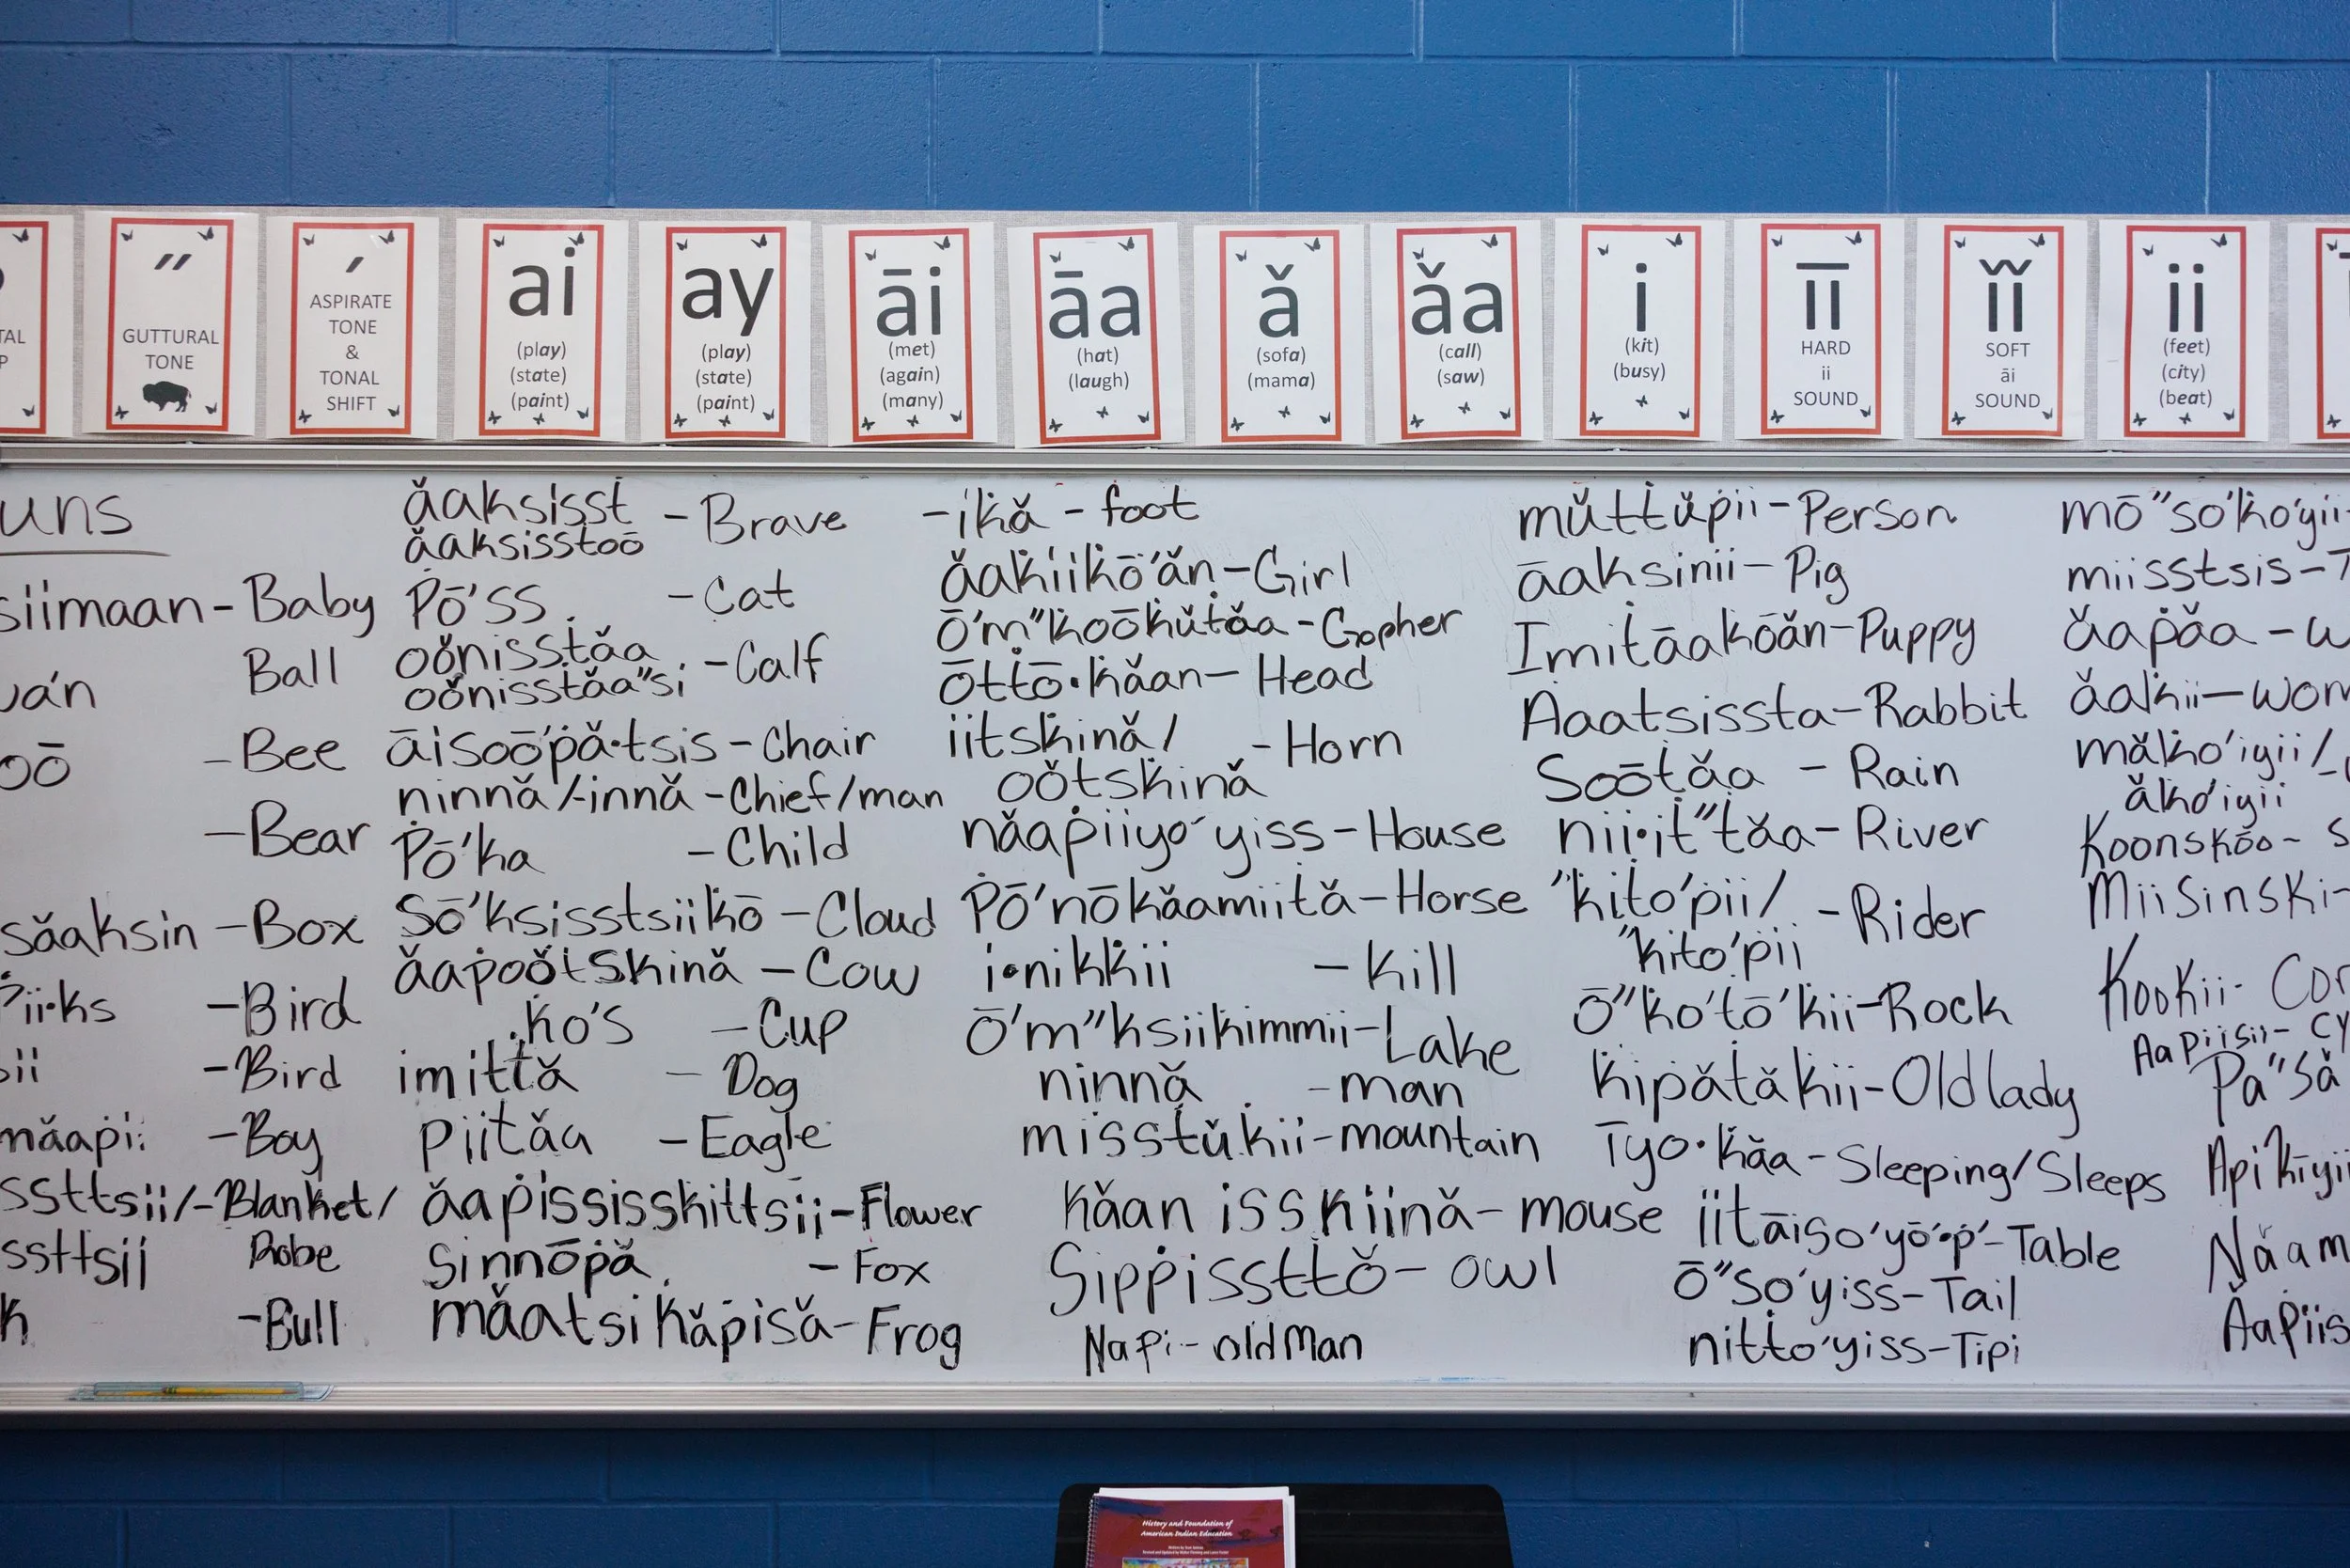 〃
GUTTURAL
TONE
ˊ
ASPIRATE
TONE
&
TONAL
SHIFT
ai
(play)
(state)
(paint)
ay
(play)
(state)
(paint)
āi
(met)
(again)
(many)
āa
(hat)
(laugh)
ǎ
(sofa)
(mama)
ǎa
(call)
(saw)
i
(kit)
(busy)
īī
HARD
ii
SOUND
ǐǐ
SOFT
āi
SOUND
ii
(feet)
(city)
(beat)
uns
siimaan - Baby
Ball
oō - Bee
- Bear
sǎaksin - Box
- Bird
- Bird
mǎapi: - Boy
ssttsii/ - Blanket/
ssttsii Robe
k - Bull
ǎaksisst - Brave
ǎaksisstoō
Pō'ss - Cat
oǒnisstǎa - Calf
oǒnisstǎa"si
āisoō'pǎ·tsis - Chair
ninnǎ/-innǎ - Chief/man
Pō'ka - Child
Sō'ksisstsiikō - Cloud
ǎapoǒtskinǎ - Cow
ko's - Cup
imittǎ - Dog
piitǎa - Eagle
ǎapississkittsii - Flower
Sinnōpǎ - Fox
mǎatsikǎpisǎ - Frog
-ikǎ - foot
ǎakiikō'ǎn - Girl
Ō'm"koōkǔtǎa - Gopher
Ōttō·kǎan - Head
iitskinǎ/ - Horn
oǒtskinǎ
nǎapiiyo'yiss - House
Pō'nōkǎamiitǎ - Horse
i·nikkii - Kill
Ō'm"ksiikimmii - Lake
ninnǎ - man
misstǔkii - mountain
Kǎan isskiinǎ - mouse
Sippissttǒ - owl
Napi - old Man
mǔttǔpii - Person
āaksinii - Pig
Imitāakōǎn - Puppy
Aaatsissta - Rabbit
Soōtǎa - Rain
nii·it"tǎa - River
"kito'pii/ - Rider
"kito'pii
Ō"ko'tō'kii - Rock
Kipǎtǎkii - Old lady
Īyo·kǎa - Sleeping/Sleeps
iitāiso'yō'·p' - Table
Ō"so'yiss - Tail
nitto'yiss - Tipi
mō"so'ko'yii-
miisstsis - T
ǎapǎa - w
ǎakii - wom
mǎko'iyii/ -
ǎko'iyii
Koonskōo - S
Miisinski -
Kookii - Cor
Aapiisii - Cy
Pa"sǎ
Apikīyii
Nǎam
Ǎapiis
History and Foundation of
American Indian Education